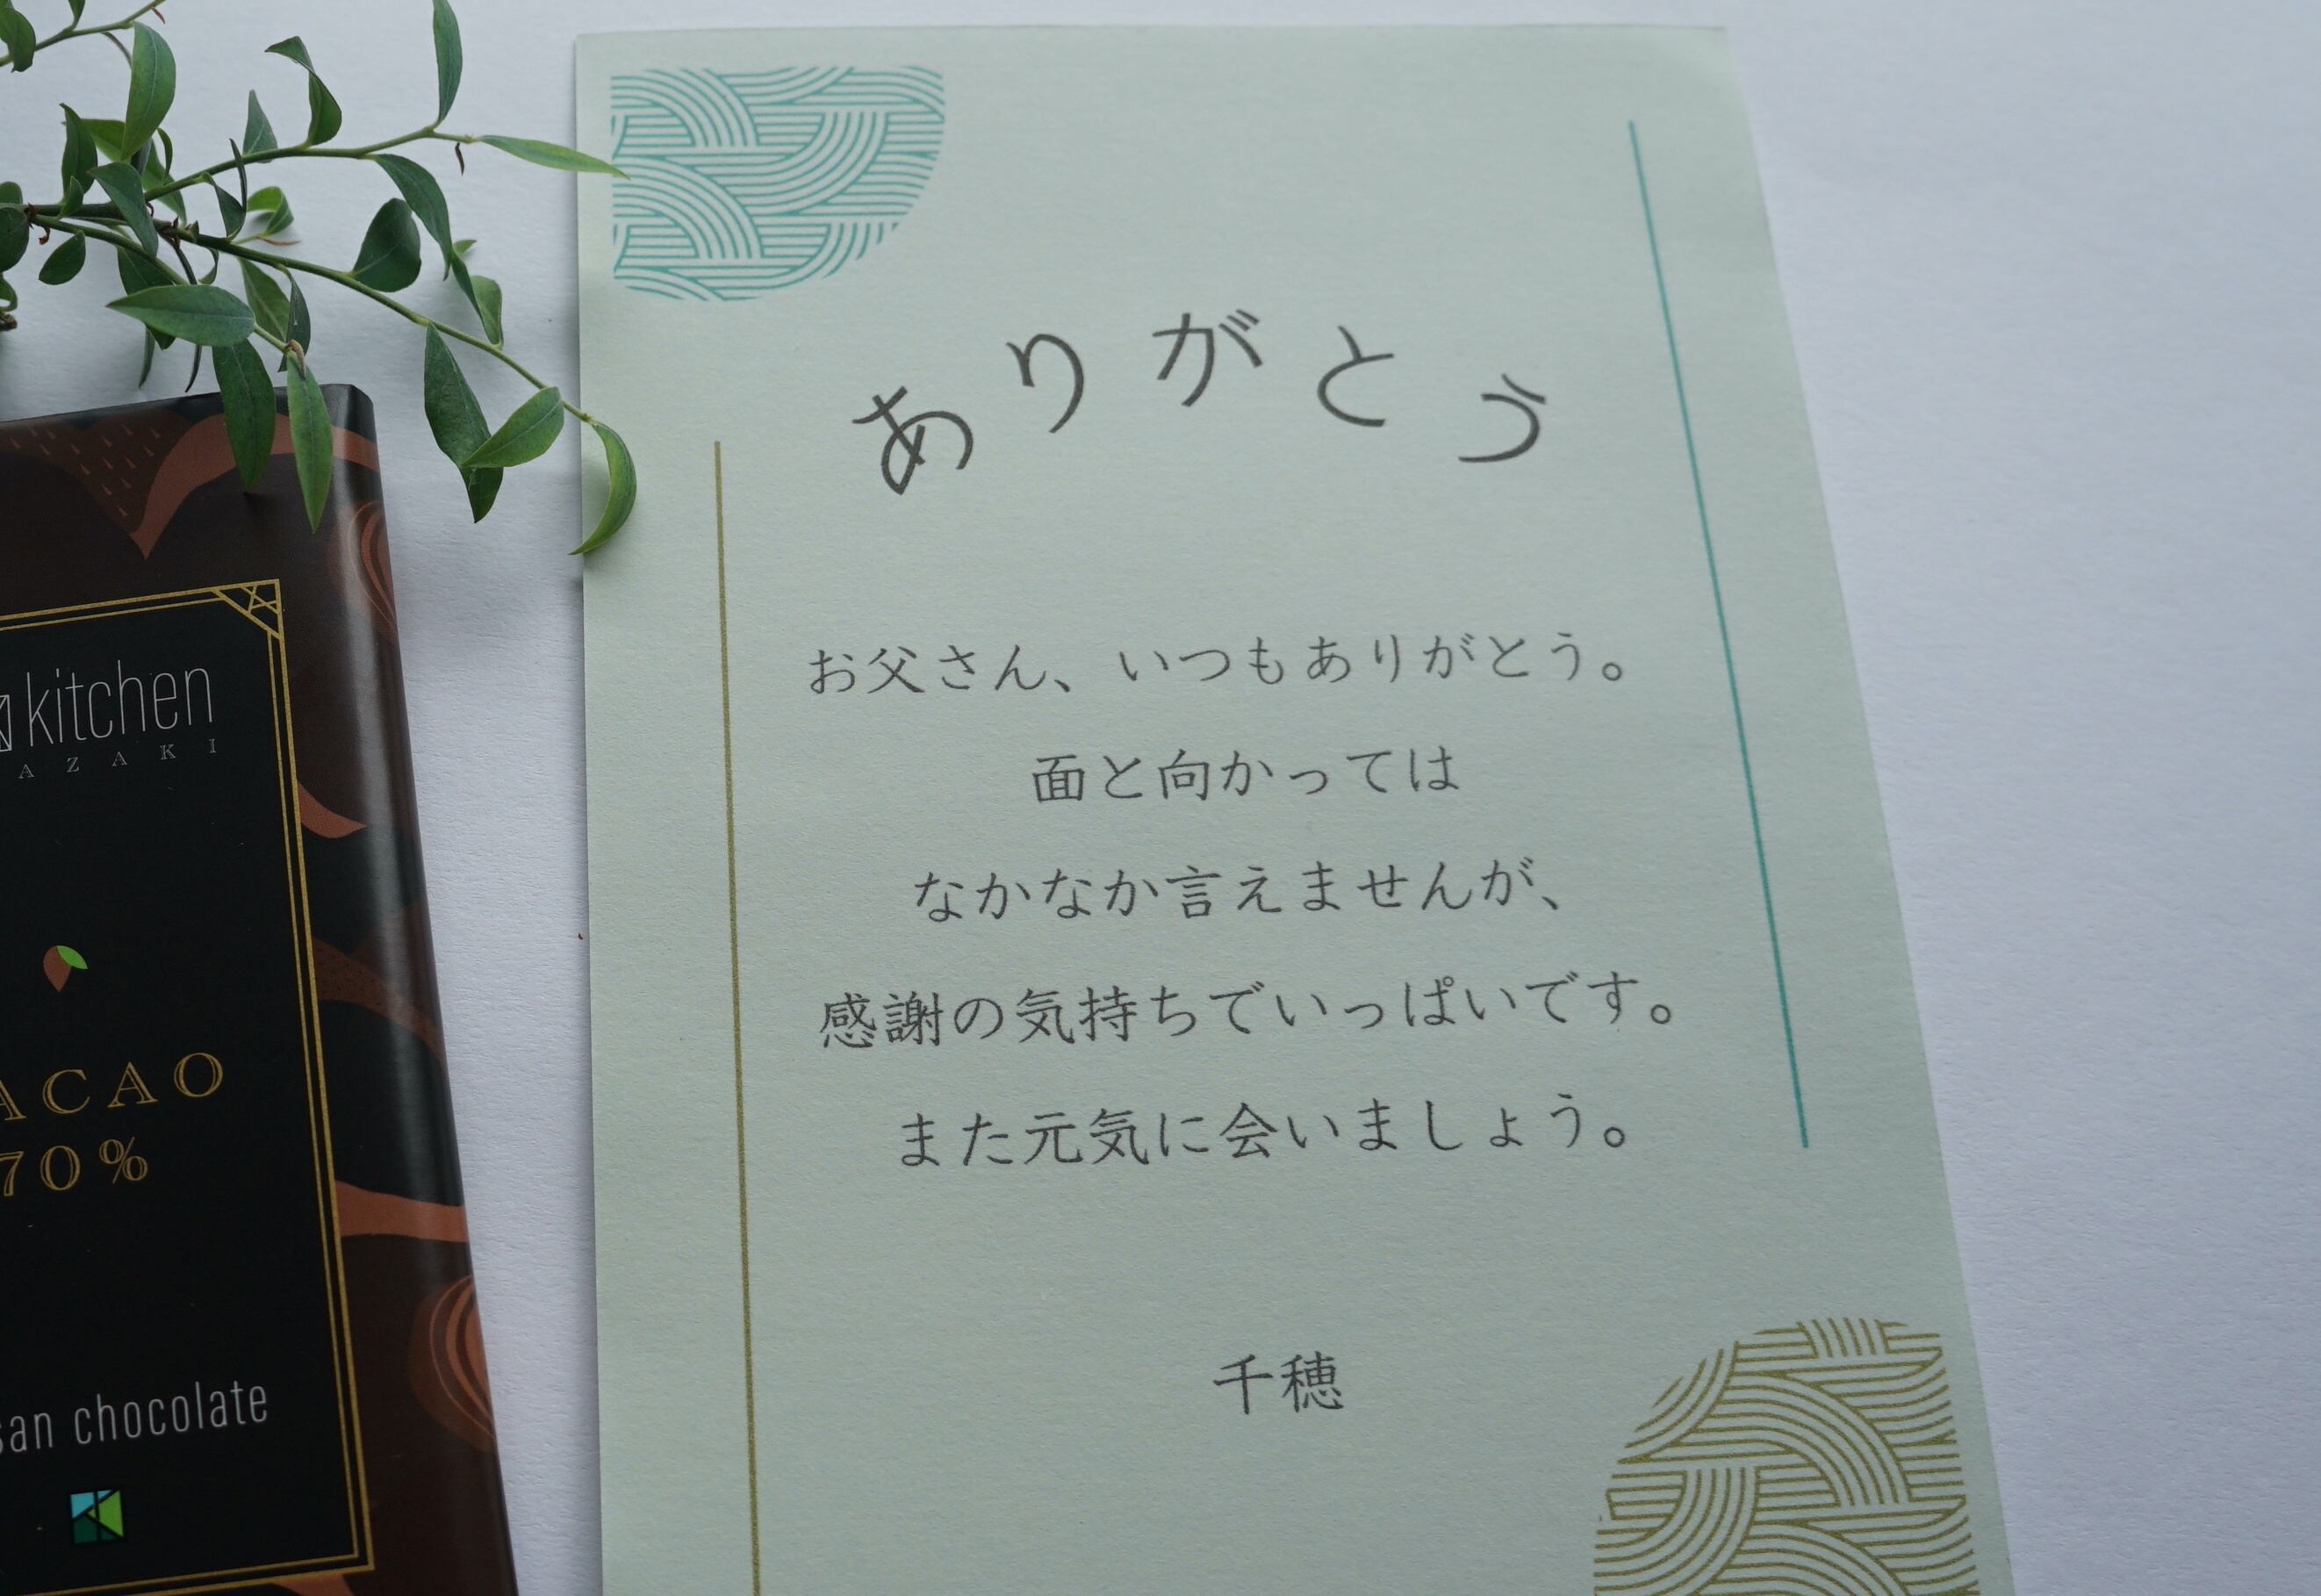 kitchen
AZAKI
ACAO
70%
san chocolate
ありがとう
お父さん、いつもありがとう。
面と向かっては
なかなか言えませんが、
感謝の気持ちでいっぱいです。
また元気に会いましょう。
千穂